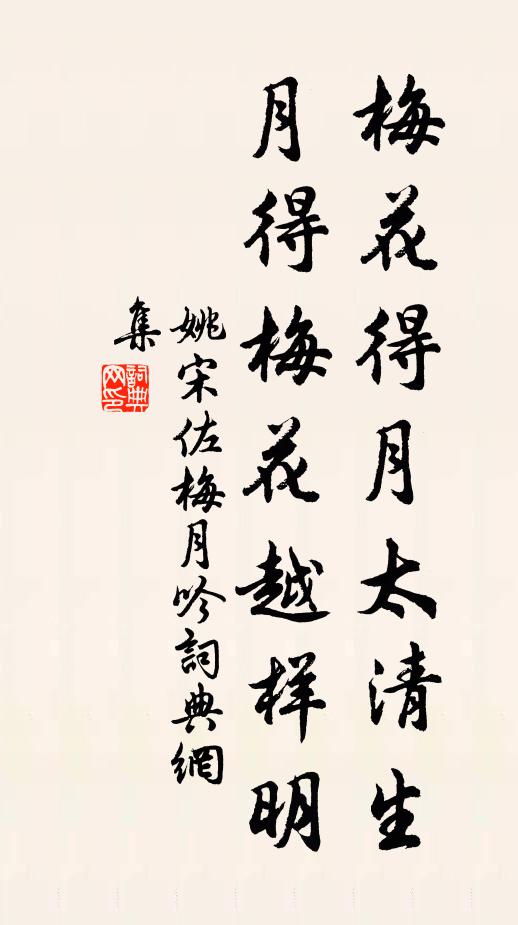 梅花得月太清生
月得梅花越样明
姚宋佐梅月吟詞典網
集
詞典
网印